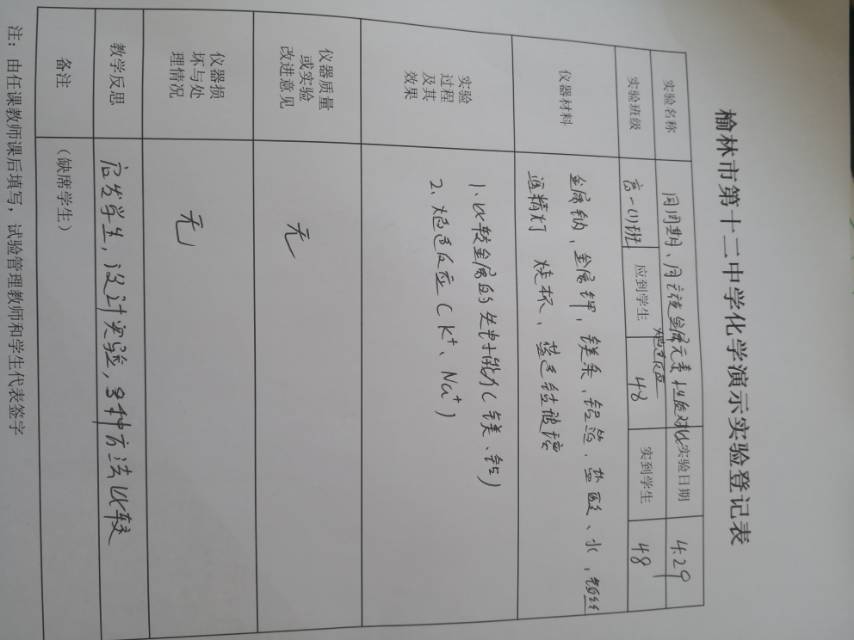 榆林市第十二中学化学演示实验登记表
实验名称 同周期、同主族金属元素性质对比 焰色反应 实验日期 4.29
实验班级 高一(1)班 应到学生 48 实到学生 48
仪器材料 金属钠、金属钾、镁条、铝箔、盐酸、水、铂丝
酒精灯 烧杯、蓝色钴玻璃
实验
过程
及其
效果
1. 比较金属的失电子能力(镁、铝)
2. 焰色反应(K⁺、Na⁺)
仪器质量
或实验
改进意见
无
仪器损
坏与处
理情况
无
教学反思 启发学生,设计实验,多种方法比较
备注 (缺席学生)
注:由任课教师课后填写,试验管理教师和学生代表签字